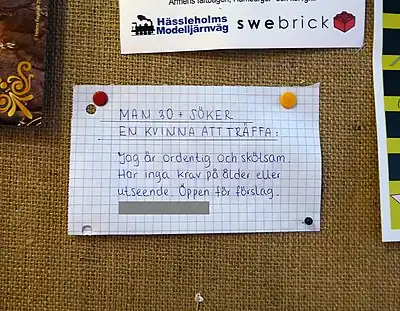 Hässleholms
Modelljärnväg
swebrick
MAN 30+ SÖKER
EN KVINNA ATT TRÄFFA:
Jag är ordentig och skötsam.
Har inga krav på ålder eller
utseende. Öppen för förslag.